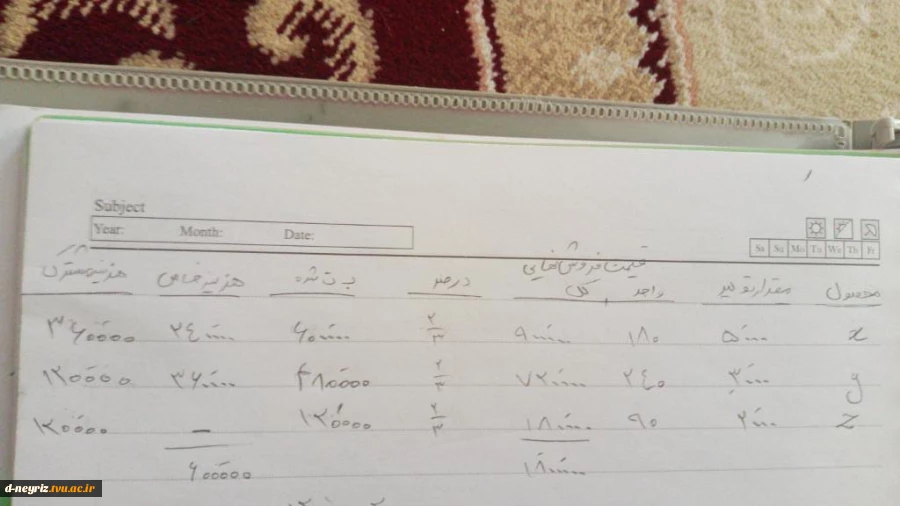 ۱
Subject
Year: Month: Date:
Sa Su Mo Tu We Th Fr
محصول مقدار تولید قیمت فروش نهایی درصد ب ت شده هزینه خاص هزینه مشترک
واحد کل
x ۵۰۰۰ ۱۸۰ ۹۰۰۰۰۰ ۲/۳ ۶۰۰۰۰۰ ۲۴۰۰۰۰ ۳۶۰۰۰۰
y ۳۰۰۰ ۲۴۰ ۷۲۰۰۰۰ ۲/۳ ۴۸۰۰۰۰ ۳۶۰۰۰۰ ۱۲۰۰۰۰
z ۲۰۰۰ ۹۰ ۱۸۰۰۰۰ ۲/۳ ۱۲۰۰۰۰ - ۱۲۰۰۰۰
۱۸۰۰۰۰۰ ۶۰۰۰۰۰
d-neyriz.tvu.ac.ir